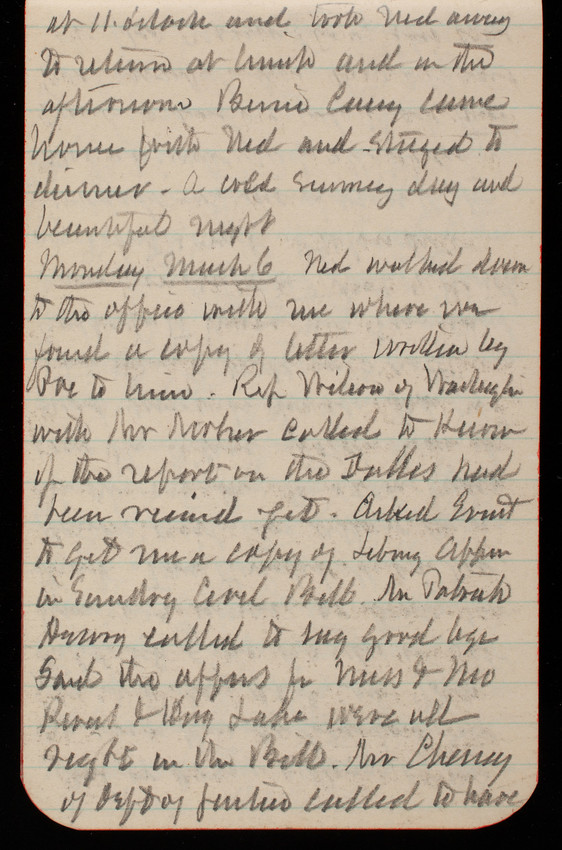 at 11 o'clock and took Ned away
to return at lunch and in the
afternoon Bernie Casey came
home with Ned and stayed to
dinner - A cold sunny day and
beautiful night
Monday March 6 Ned walked down
to the office with me where we
found a copy of letter written by
Poe to him. Rep Wilson of Washington
with Mr called to know
if the report on the Dalles had
been received yet. Asked Evert
to get me a copy of Library Appn
in Sundry Civil Bill. Mr Patrick
called to say good bye
Said the appns for Miss & Mo
Rivers & Lake were all
right in the Bill. Mr Cheney
of Dept of Justice called to have